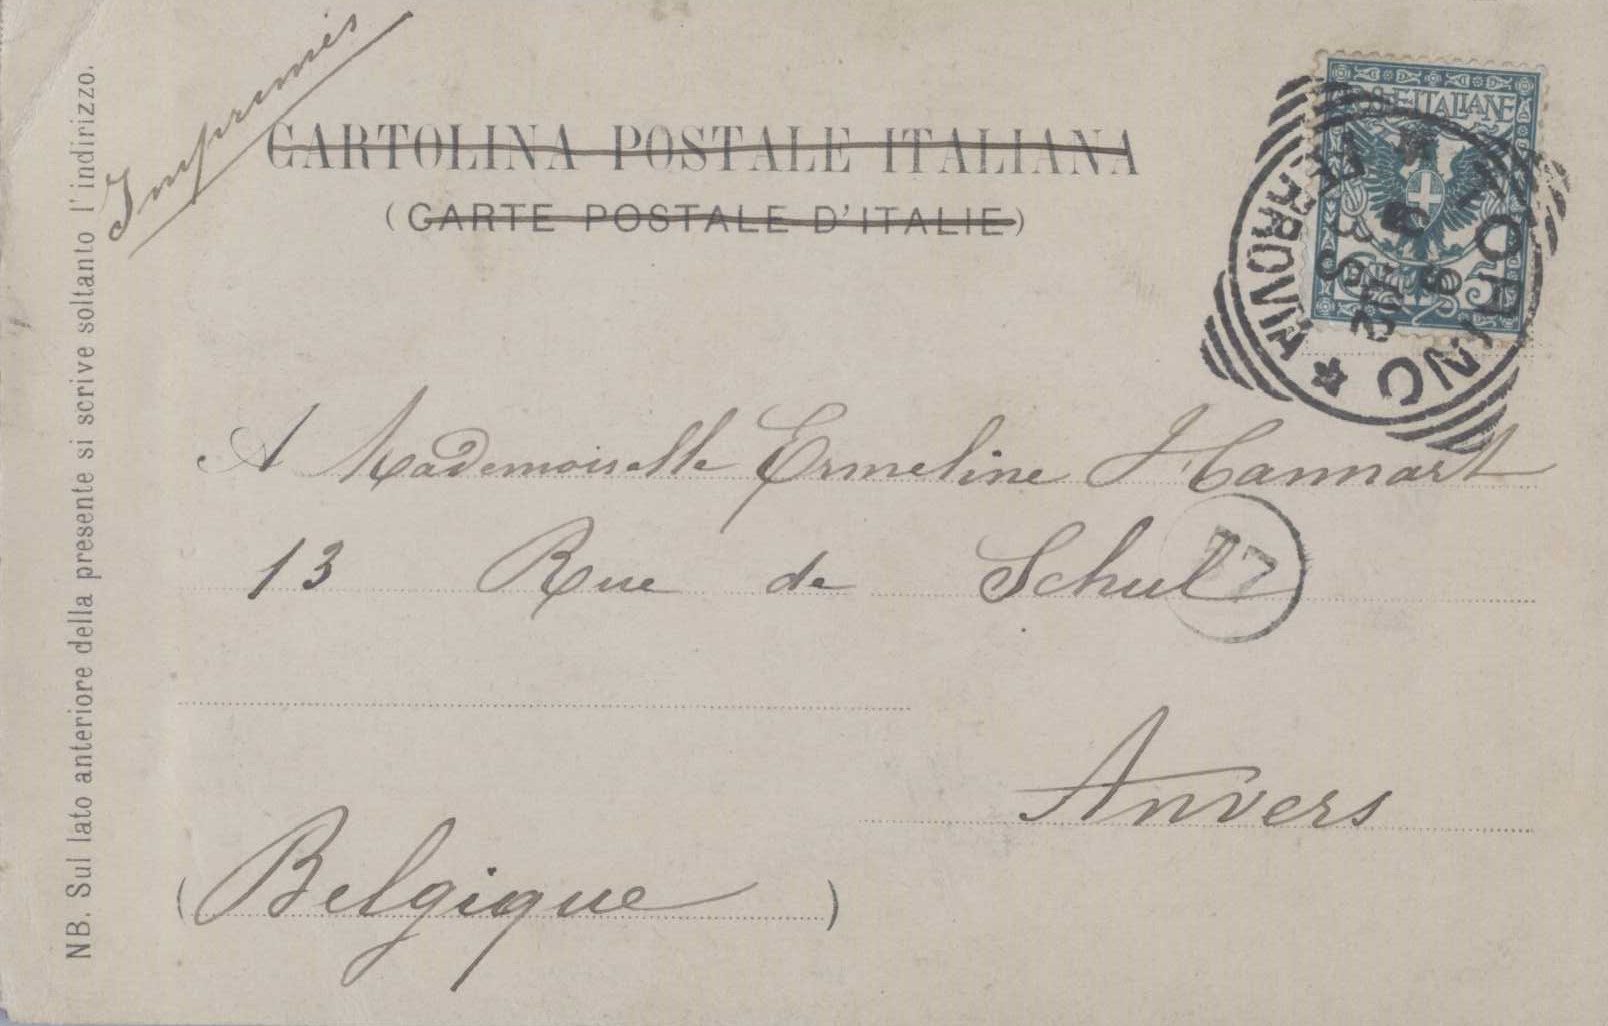 Imprimés
CARTOLINA POSTALE ITALIANA
(CARTE POSTALE D'ITALIE)
POSTE ITALIANE
TORINO
FERROVIA
A Mademoiselle Ermeline Hannart
13 Rue de Schul
Anvers
(Belgique)
NB. Sul lato anteriore della presente si scrive soltanto l'indirizzo.